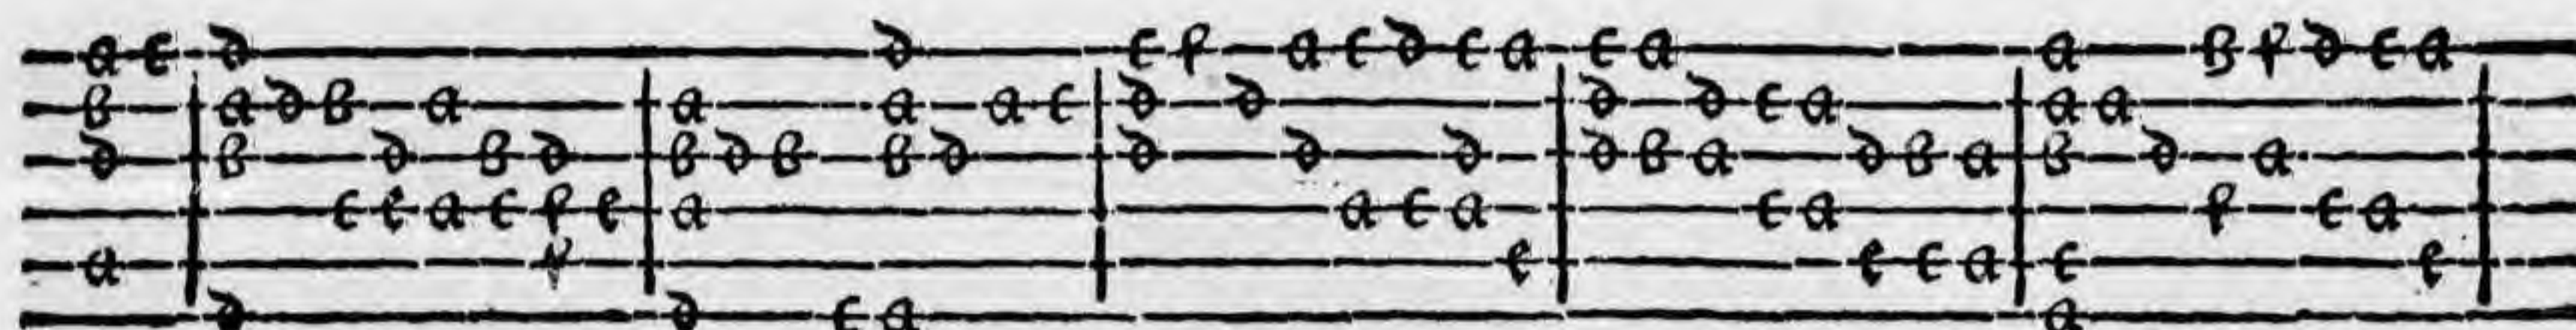 a c d d c f a c d c a c a a B f d c a
B a d B a a a a c d d d c a a a
d B d B d B d B B d d d d d B a d B a B d a
c e a c f e a a c a c a f c a
a f e e c a c e
d d c a a